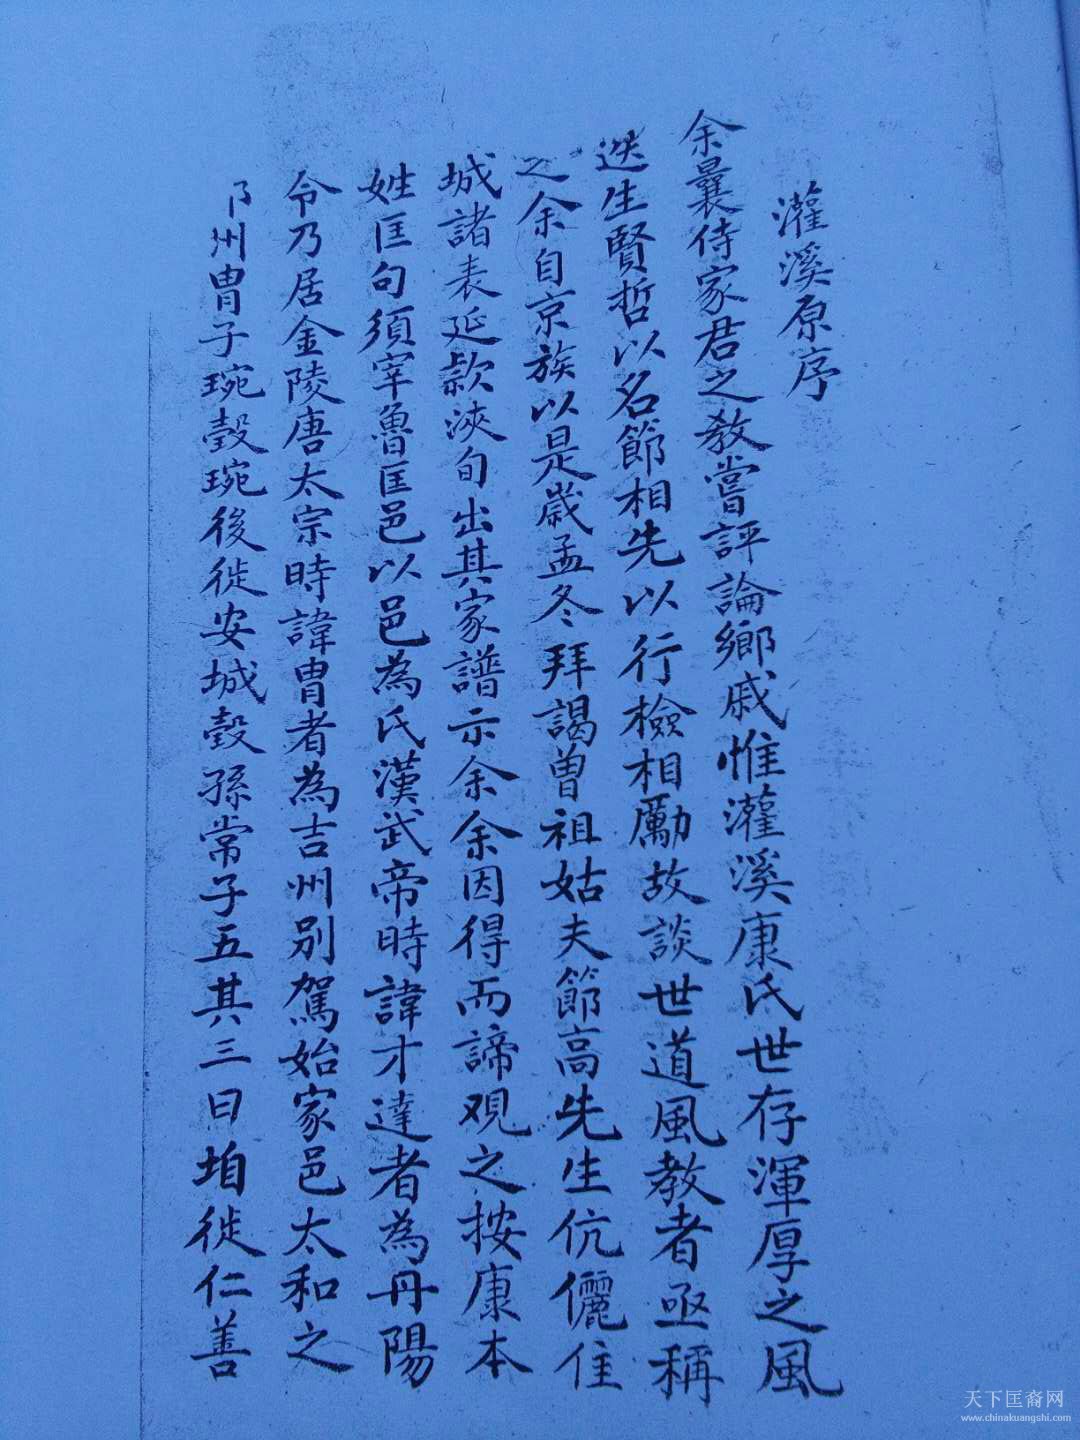 灌溪原序
余曩侍家君之教嘗評論鄉戚惟灌溪康氏世存渾厚之風
迭生賢哲以名節相先以行檢相勵故談世道風教者亟稱
之余自京族以是歲孟冬拜謁曾祖姑夫節高先生伉儷住
城諸表延款浹旬出其家譜示余余因得而諦观之按康本
姓匡句須宰魯匡邑以邑為氏漢武帝時諱才達者為丹陽
令乃居金陵唐太宗時諱胄者為吉州别駕始家邑太和之
州胄子琬瑴琬後徙安城瑴孫常子五其三曰垍徙仁善
天下匡裔网
www.chinakuangshi.com